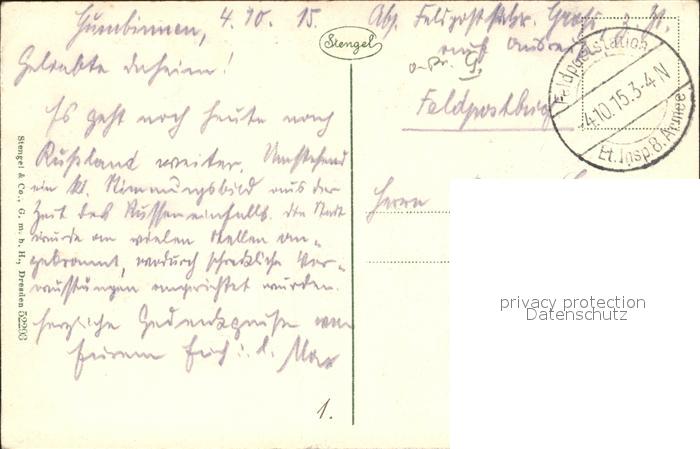 Gumbinnen, 4.10.15.
Geliebte daheim!
Es geht noch heute nach
Rußland weiter. Umstehend
ein kl. Stimmungsbild aus der
Zeit des Russeneinfalls. Die Stadt
wurde an vielen Stellen an-
gebrannt, wodurch schreckliche Ver-
wüstungen angerichtet wurden.
Herzliche Gedenkgrüße von
Eurem Euch l. Max
1.
Stengel & Co., G. m. b. H., Dresden 52296
Stengel
Abs. Feldpost
auf
Feldpostbrief
Herrn
Feldpoststation
4.10.15.3-4 N
Et. Insp. 8. Armee
privacy protection
Datenschutz